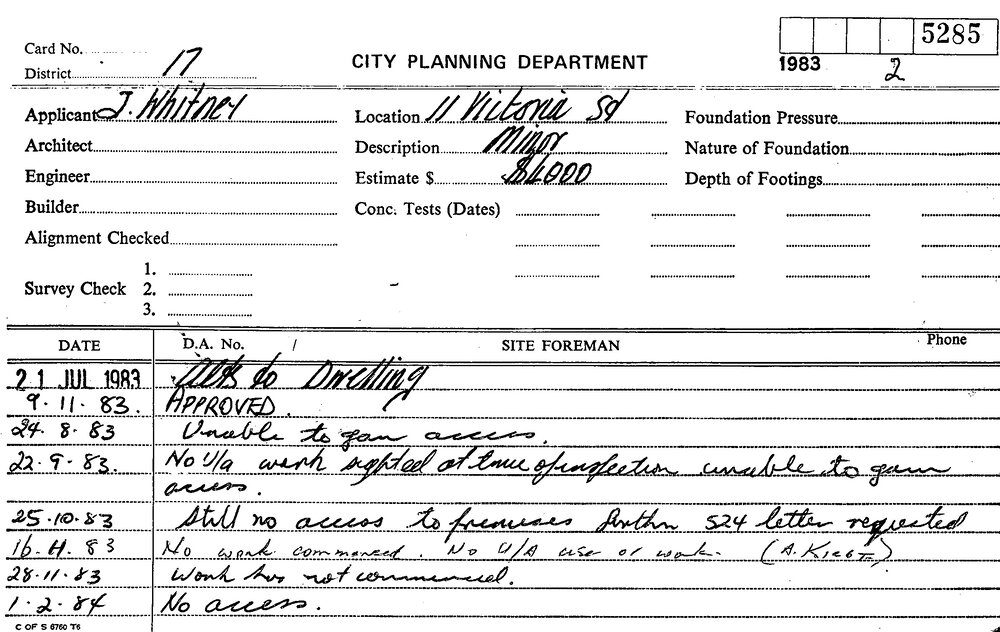 5285
Card No.
CITY PLANNING DEPARTMENT
1983 2
District 17
Applicant J. Whitney
Location 11 Victoria St
Foundation Pressure
Architect
Description Minor
Nature of Foundation
Engineer
Estimate $ $4000
Depth of Footings
Builder
Conc. Tests (Dates)
Alignment Checked
Survey Check
1.
2.
3.
DATE D.A. No. / SITE FOREMAN Phone
21 JUL 1983 Alts to Dwelling
9.11.83. APPROVED.
24.8.83 Unable to gain access.
22.9.83. No U/a work sighted at time of inspection unable to gain
access.
25.10.83 Still no access to premises further 524 letter requested
16.11.83 No work commenced. No U/A use or work.
28.11.83 Work has not commenced.
1.2.84 No access.
C OF S 6760 T6